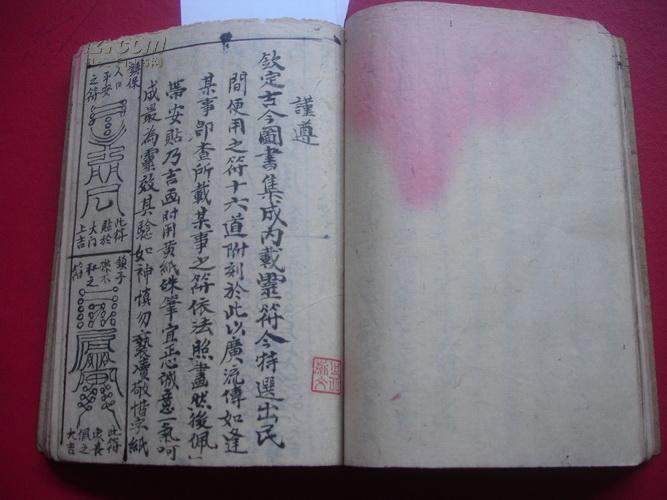 謹遵
欽定古今圖書集成內載靈符今特選出民
間使用之符十六道附刻於此以廣流傳如逢
某事即查所載某事之符依法照畫然後佩
帶安貼乃吉画時用黃紙硃筆宜正心誠意一氣呵
成最為靈效其驗如神慎勿褻瀆敬惜字紙
鎮保
人口
平安
之符
此符
貼於
大门
上吉
之
符
此符
佩之
大吉